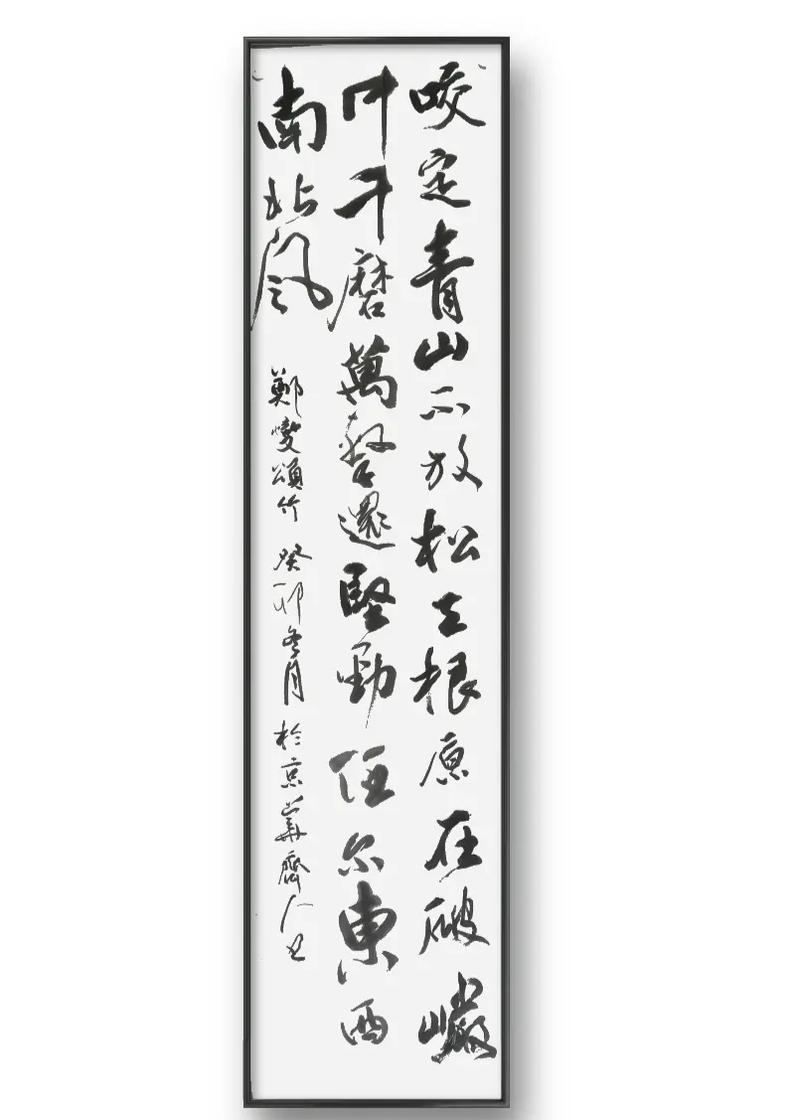 咬定青山不放松立根原在破巖
中千磨萬擊還堅勁任尔東西
南北風
鄭燮頌竹 癸卯冬月 於京華齋人书